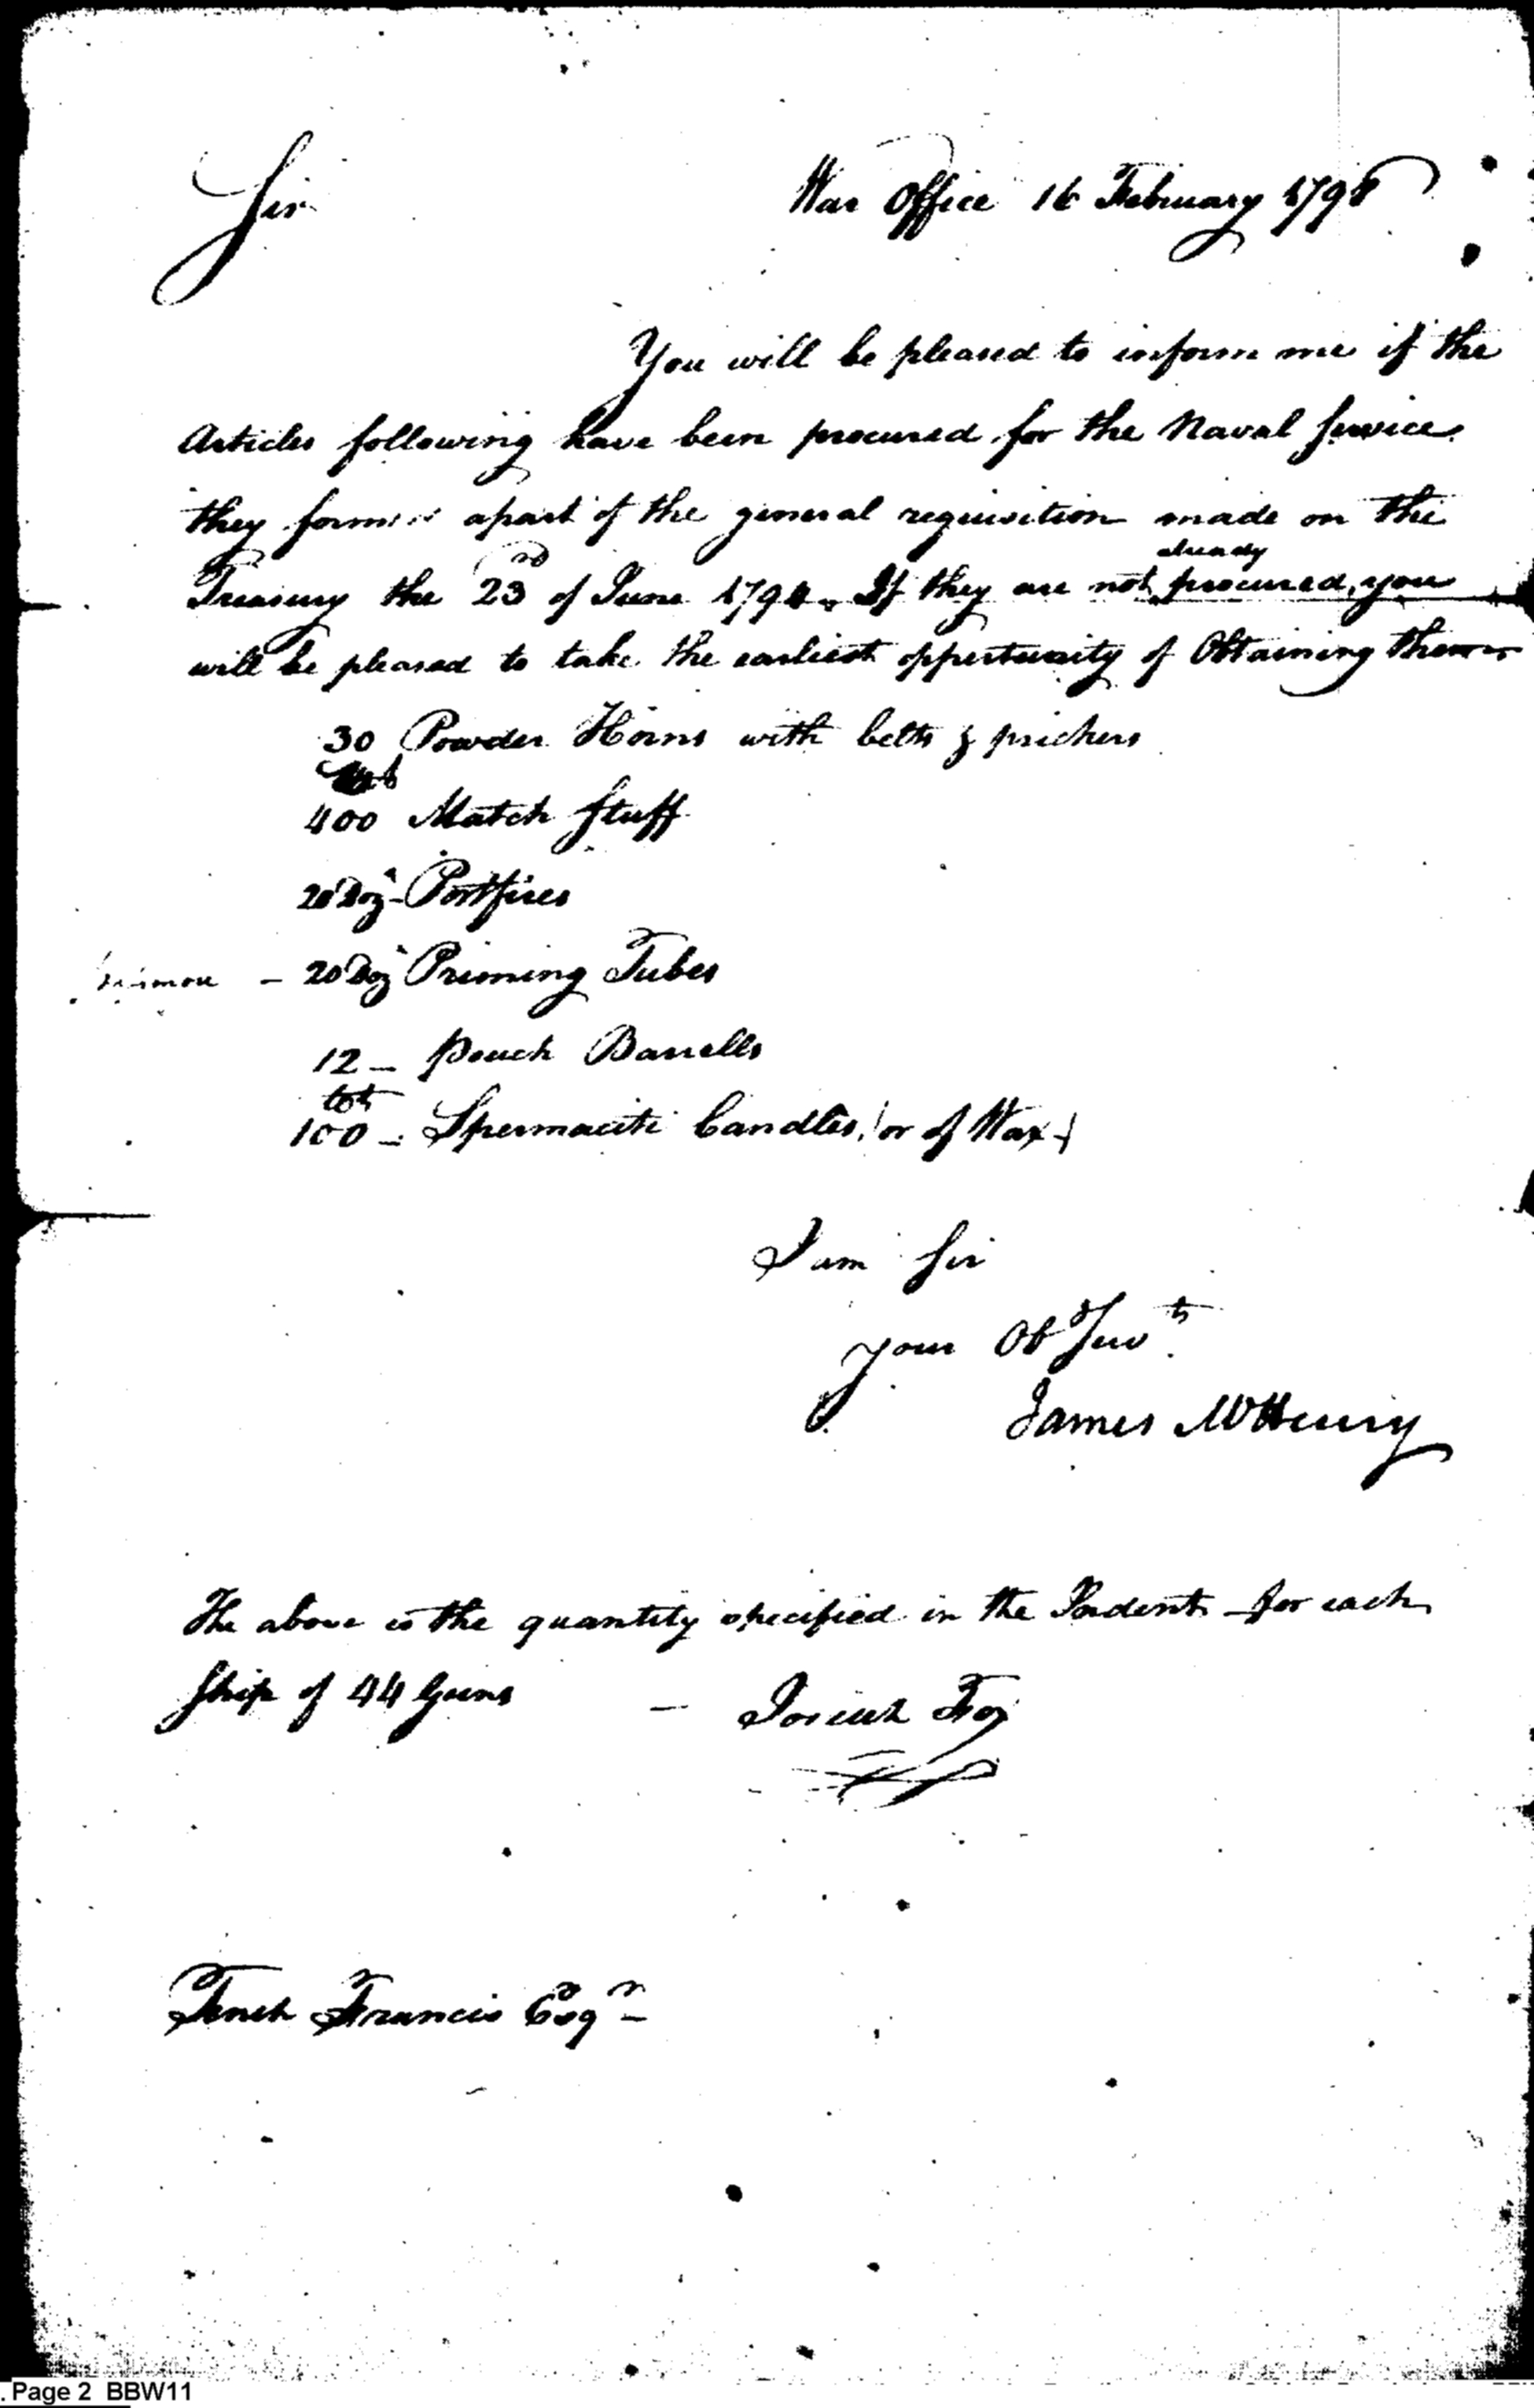 Sir
War Office 16 February 1798
You will be pleased to inform me if the
Articles following have been procured for the Naval Service
they form a part of the general requisition made on the
already
Treasury the 23rd of June 1794. If they are not procured, you
will be pleased to take the earliest oppertunity of Obtaining them
30 Powder Horns with belts & prickers
400 Match Stuff
20 Doz Portfires
20 Doz Priming Tubes
12 - Pouch Barrells
100 - Spermaciti Candles, (or of Wax)
I am Sir
your Ob Servt
James McHenry
The above is the quantity specified in the Indent for each
Ship of 44 Guns - Josiah Fox
Tench Francis Esqr
Page 2 BBW11